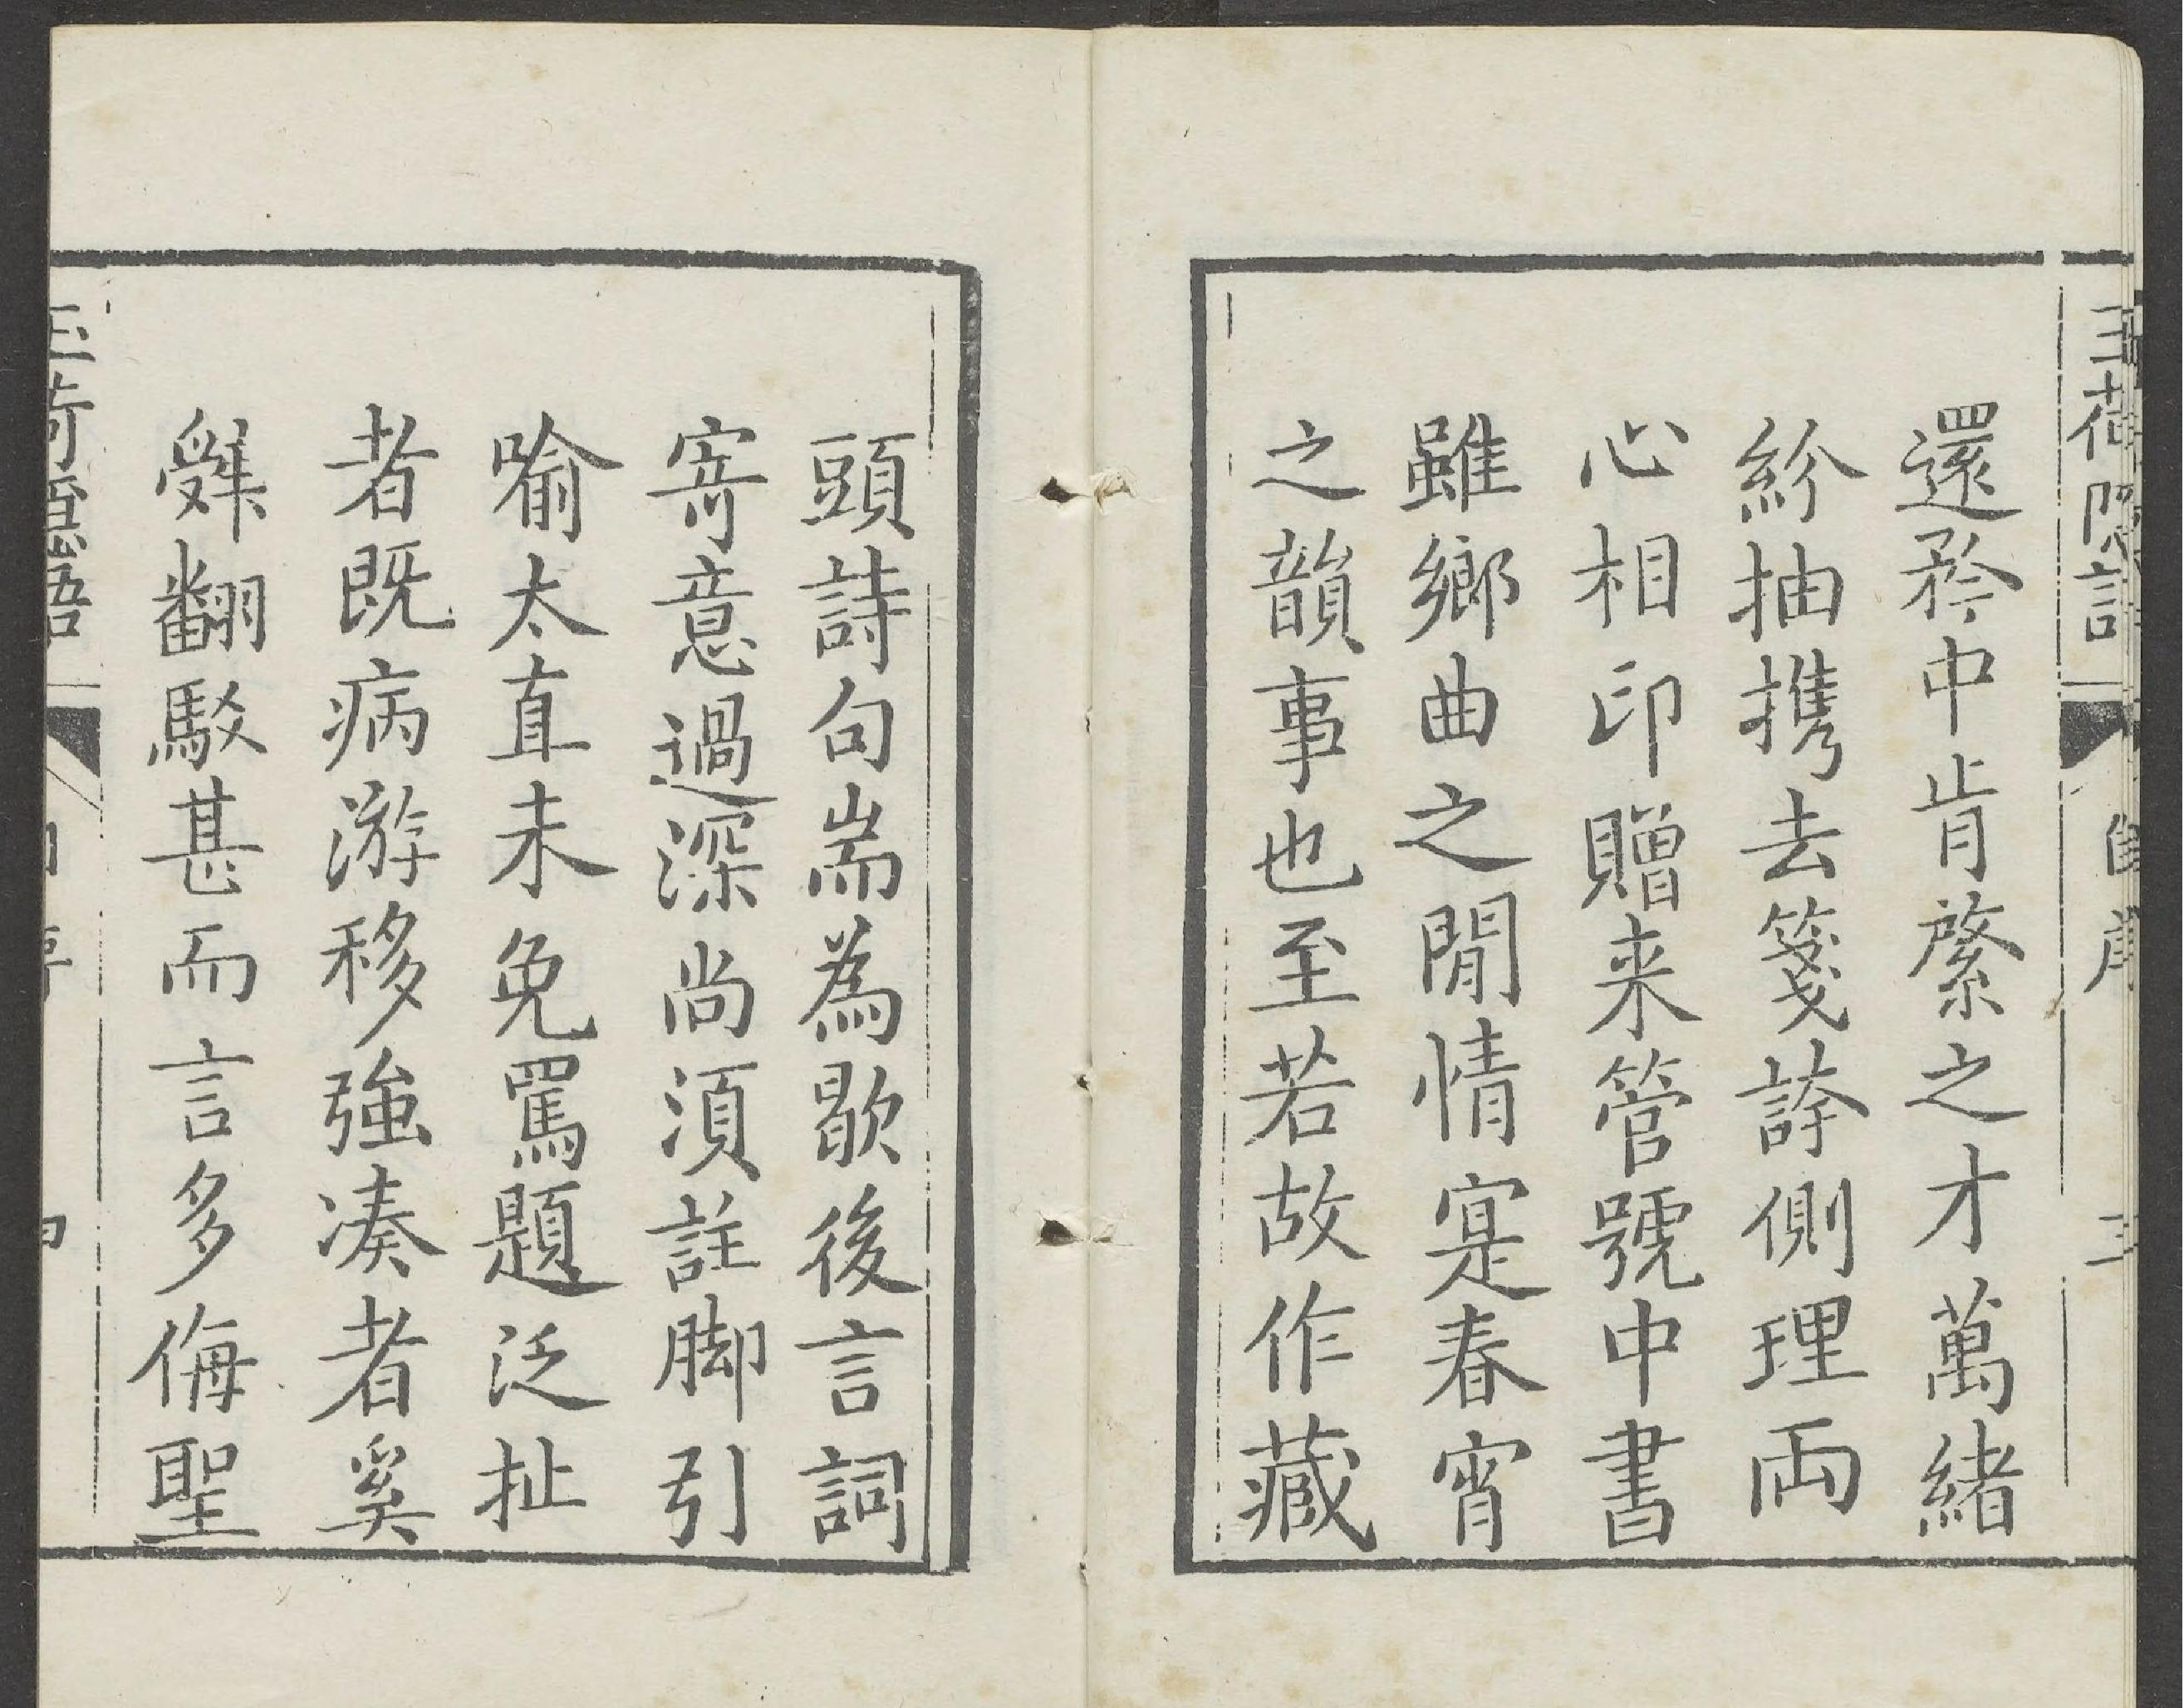 自序
還矜中肯綮之才萬緒
紛抽携去箋誇側理両
心相印贈来管號中書
雖鄉曲之閒情寔春宵
之韻事也至若故作藏
頭詩句耑為歇後言詞
寄意過深尚須註脚引
喻太直未免罵題泛扯
者既病游移強凑者奚
辭翻駁甚而言多侮聖